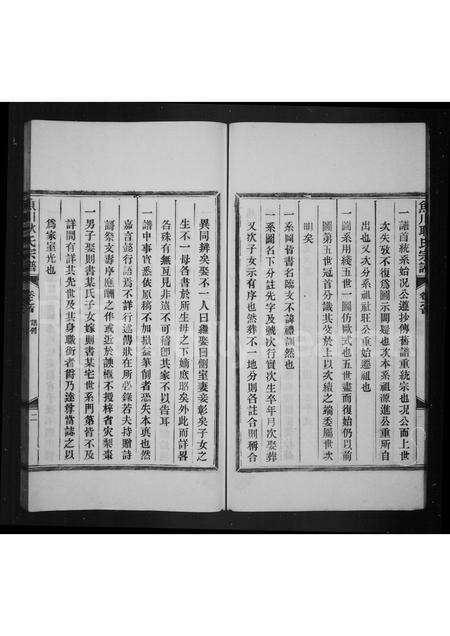 魚川耿氏宗譜
卷首
一譜首統系始況公遵抄傳舊譜重統宗也況公而上世
次失攷不復爲圖示闕疑也次本系祖源進公重所自
出也又次分系祖社莊公重始遷祖也
一圖系用綫五世一圖仿歐式也五世盡而復始仍以前
圖第五世冠首分識其及於上以次續之端委屬世次
明矣
一系圖皆書名臨文不諱禮訓然也
一系圖名下分註先字及號次行實次生卒年月次娶葬
又次子女示有序也然葬不一地分則各註合則稱合
異同辨矣娶不一人曰繼娶曰側室妻妾彰矣子女之
生不一母各書於所生母之下嫡庶昭矣外此而詳畧
各殊有無互見非遺不可稽卽其家不以告耳
一譜中事實悉依原稿不加損益筆削者恐失本真也然
嘉言懿行語焉不詳行述傳狀在所必錄若夫持贈詩
壽祭文壽序庭酬之作或近於諛概不援梓省災梨棗
一男子娶則書某氏子女嫁則書某宅世系門第皆不及
詳間有詳其先世及其身職銜者爵乃達尊當誌之以
爲家室光也
魚川耿氏宗譜
卷首